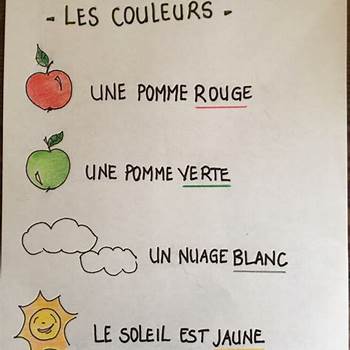 - LES COULEURS -
UNE POMME ROUGE
UNE POMME VERTE
UN NUAGE BLANC
LE SOLEIL EST JAUNE